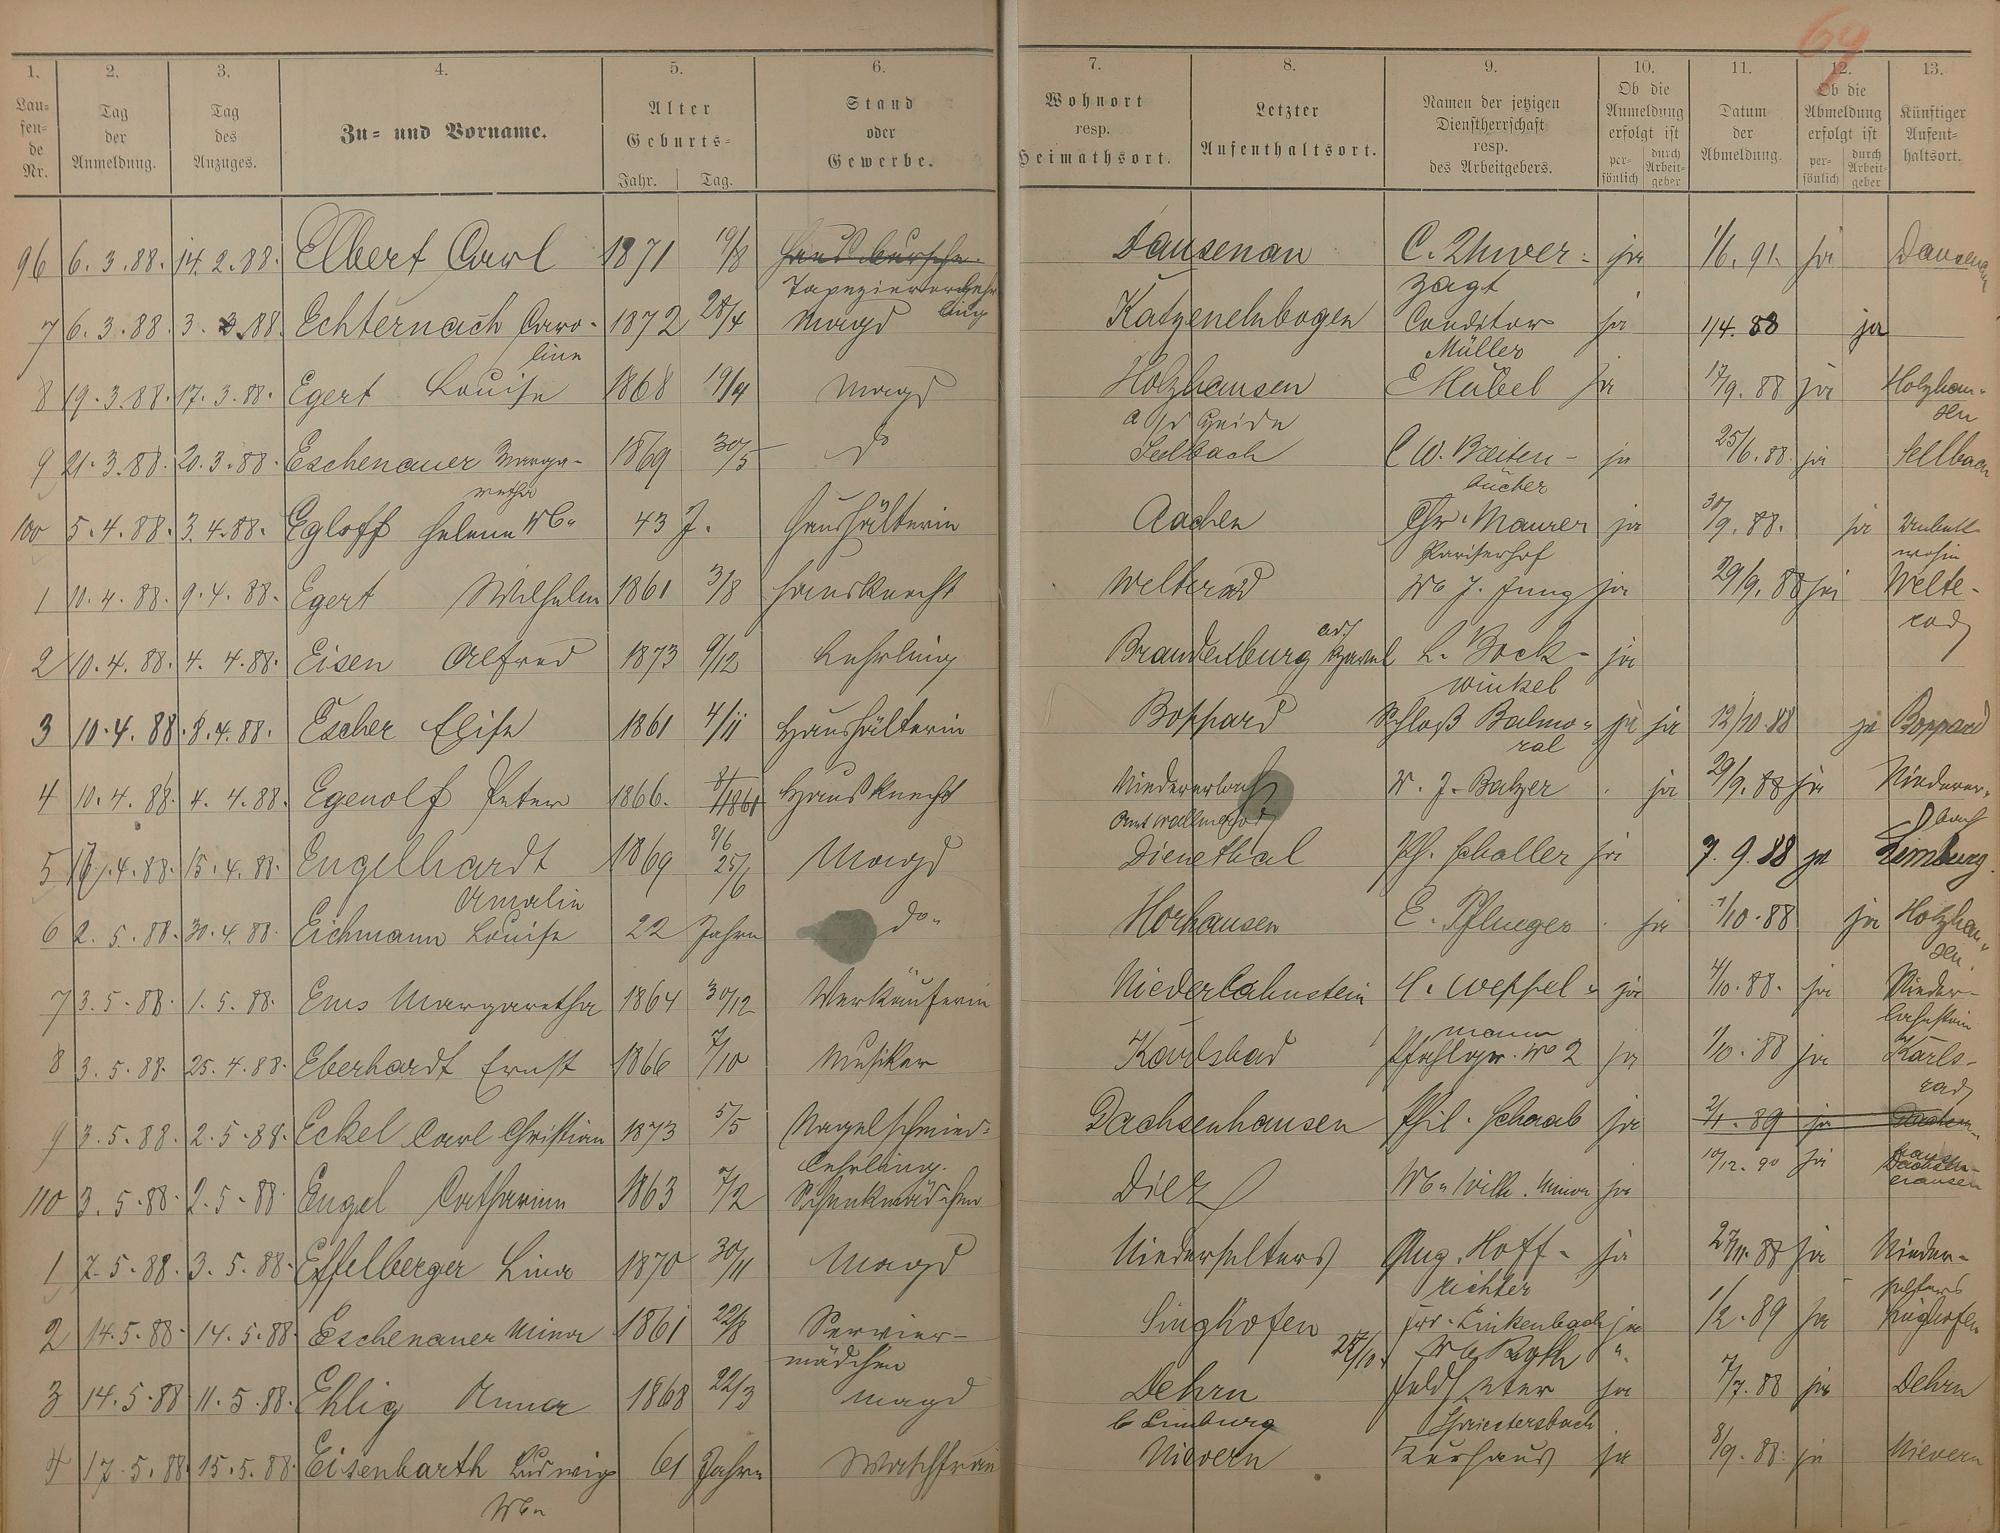 69
1. 2. 3. 4. 5. 6. 7. 8. 9. 10. 11. 12. 13.
Lau-fen-de Nr. Tag der Anmeldung. Tag des Anzuges. Zu- und Vorname. Alter Geburts- Jahr. Tag. Stand oder Gewerbe. Wohnort resp. Heimathsort. Letzter Aufenthaltsort. Namen der jetzigen Dienstherrschaft resp. des Arbeitgebers. Ob die Anmeldung erfolgt ist per-sönlich durch Arbeit-geber Datum der Abmeldung. Ob die Abmeldung erfolgt ist per-sönlich durch Arbeit-geber Künftiger Aufent-haltsort.
96 6. 3. 88. 14. 2. 88. Elbert Carl 1871 19/8 Hausbursche. Dausenau C. Thuer- ja 1/6. 91. ja Dausenau
Tapeziererlehr ling zagt
7 6. 3. 88. 3. 3. 88. Echternach Caro- 1872 28/4 Magd Katzenelnbogen Conditor ja 1/4. 88 ja
line Müller
8 19. 3. 88. 17. 3. 88. Egert Louise 1868 19/4 Magd Holzhausen E Mübel ja 17/9. 88 ja Holzhau-
a/d Haide sen
9 21. 3. 88. 20. 3. 88. Eschenauer Marga- 1869 30/5 do Seelbach C W. Breiten- ja 25/6. 88. ja Sellbach
retha bücher
100 5. 4. 88. 3. 4. 88. Egloff Helene Wb. 43 J. Haushälterin Aachen Chr. Maurer ja 30/9. 88. ja Unbek.
Pariserhof wohin
1 10. 4. 88. 9. 4. 88. Egert Wilhelm 1861 3/8 Hausknecht Welterod Wb J. Jung ja 29/9. 88 ja Welte-
rod
2 10. 4. 88. 4. 4. 88. Eisen Alfred 1873 9/12 Lehrling Brandenburg a/d Havel L. Bock- ja
winkel
3 10. 4. 88. 8. 4. 88. Escher Elise 1861 4/11 Haushälterin Boppard Schloß Balmo- ja ja 12/10. 88 ja Boppard
ral
4 10. 4. 88. 4. 4. 88. Egenolf Peter 1866. Hausknecht Niedererbach W. J. Balzer ja 29/9. 88 ja Niederer-
8/6 Amt Wallmerod bach
5 16. 4. 88. 15. 4. 88. Engelhardt 1869 25/6 Magd Dienethal Ph. Schaller ja 7. 9. 88 ja Limburg.
Amalie
6 2. 5. 88. 30. 4. 88. Eichmann Louise 22 Jahre do. Horhausen E. Pflueger ja 1/10. 88 ja Holzhau-
sen.
7 3. 5. 88. 1. 5. 88. Ems Margaretha 1864 30/12 Verkäuferin Niederlahnstein H. Weppel- ja 4/10. 88. ja Nieder-
mann lahnstein
8 3. 5. 88. 25. 4. 88. Eberhardt Ernst 1866 7/10 Musiker Karlsbad Pfahlgr. No 2 ja 1/10. 88 ja Karls-
bad
9 3. 5. 88. 2. 5. 88. Eckel Carl Christian 1873 5/5 Nagelschmied- Dachsenhausen Phil. Schaab ja 2/1. 89 ja Dachsen-
lehrling. 10/12. 90 ja hausen Dachsen-hausen
110 3. 5. 88. 2. 5. 88. Engel Catharine 1863 7/2 Schenkmädchen Diez Wb. Wilh. Minor ja
1 7. 5. 88. 3. 5. 88. Effelberger Lina 1870 30/11 Magd Niederselters Aug. Hoff- ja 27/11. 88 ja Nieder-
richter selters
2 14. 5. 88. 14. 5. 88. Eschenauer Mina 1861 22/8 Servier- Singhofen Frdr. Linkenbach ja 1/2. 89 ja Singhofen
mädchen 25/10. Wb Roth ".
3 14. 5. 88 11. 5. 88. Ehlig Anna 1868 22/3 Magd Dehrn ja 7/7. 88 ja Dehrn
b Limburg Spriestersbach
4 17. 5. 88. 15. 5. 88. Eisenbarth Ludwig 61 Jahre Waschfrau Nievern Kurhaus ja 8/9. 88. ja Nievern
Wb.